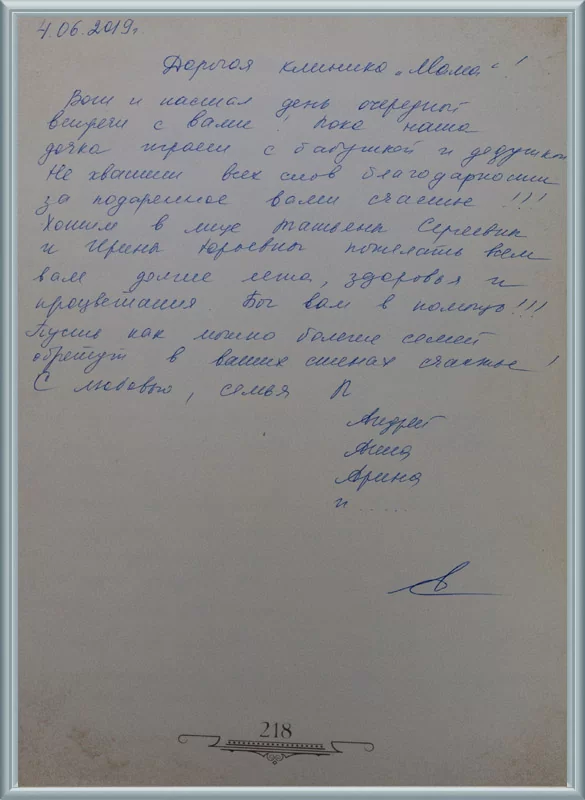 4.06.2019г.
Дорогая клиника „Мама“!
Вот и настал день очередной
встречи с вами! Пока наша
дочка играет с бабушкой и дедушкой
Не хватит всех слов благодарности
за подаренное вами счастье !!!
Хотим в лице Татьяны Сергеевны
и Ирины Юрьевны пожелать всем
вам долгие лета, здоровья и
процветания. Бог вам в помощь!!!
Пусть как можно более семей
обретут в ваших стенах счастье!
С любовью, семья П
Андрей
Анна
Арина
и ......
218